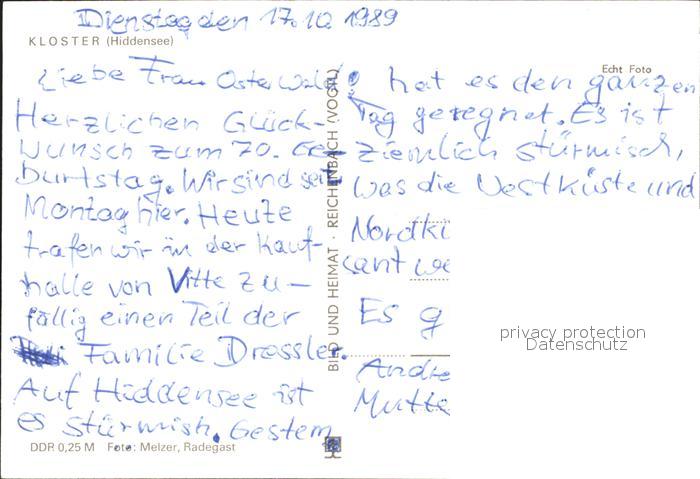 Dienstag den 17.10 1989
KLOSTER (Hiddensee)
Liebe Frau Osterwald!
Herzlichen Glück-
wunsch zum 70. Ge-
burtstag. Wir sind seit
Montag hier. Heute
trafen wir in der Kauf-
halle von Vitte zu-
fällig einen Teil der
Familie Dressler.
Auf Hiddensee ist
es stürmish. Gestern
DDR 0,25 M Foto: Melzer, Radegast
BILD UND HEIMAT · REICHENBACH (VOGTL)
Echt Foto
hat es den ganzen
Tag geregnet. Es ist
ziemlich stürmisch,
was die Westküste und
Nordkü
sant we
Es g
Andre
Mutte
privacy protection
Datenschutz